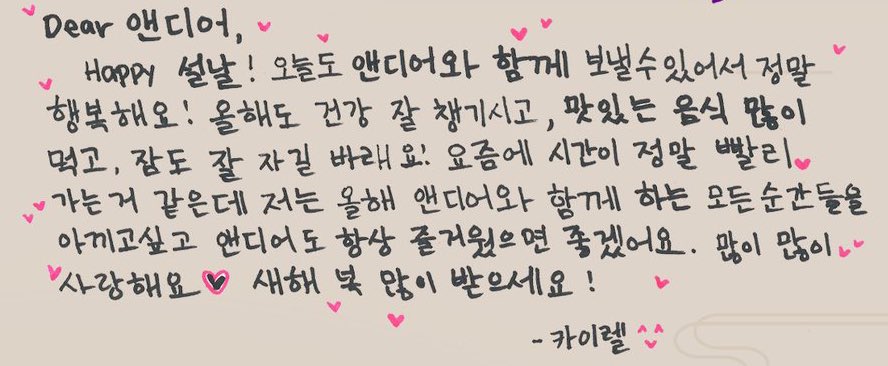 Dear 앤디어,
Happy 설날! 오늘도 앤디어와 함께 보낼수있어서 정말
행복해요! 올해도 건강 잘 챙기시고, 맛있는 음식 많이
먹고, 잠도 잘 자길 바래요! 요즘에 시간이 정말 빨리
가는거 같은데 저는 올해 앤디어와 함께 하는 모든순간들을
아끼고싶고 앤디어도 항상 즐거웠으면 좋겠어요. 많이 많이
사랑해요 새해 복 많이 받으세요!
-카이렐